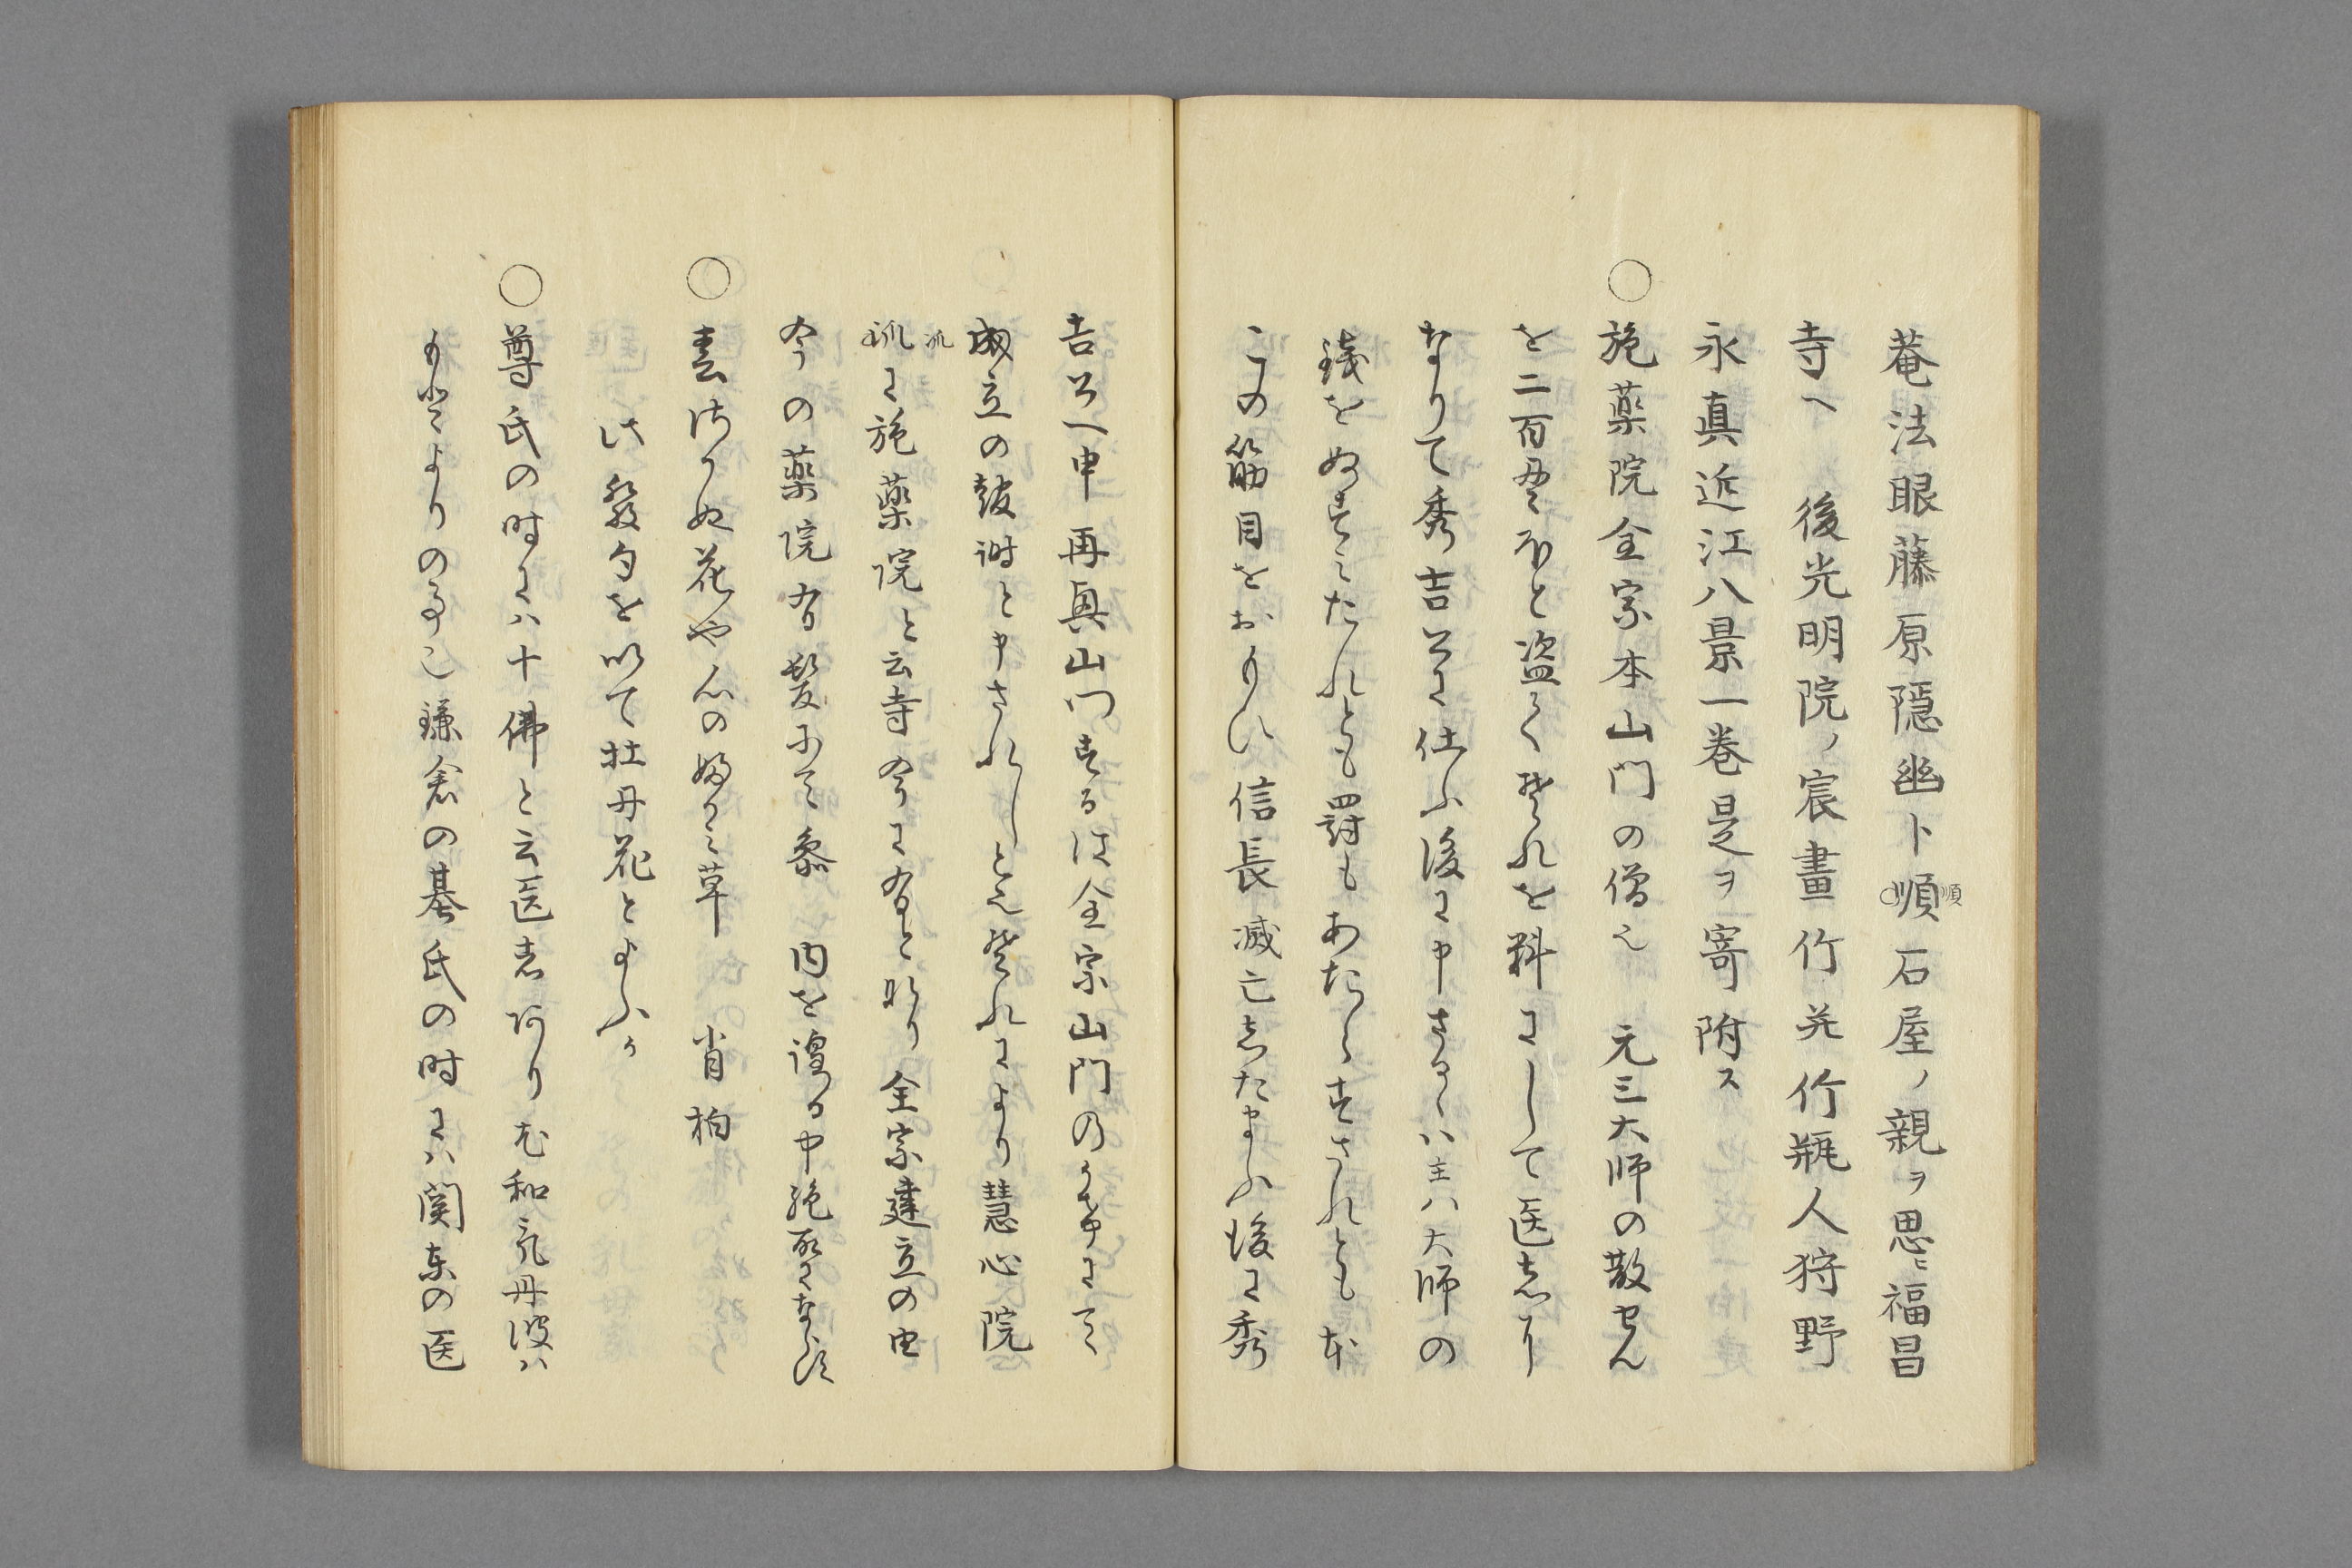 菴法眼藤原隠幽ト順石屋ノ親ヲ思ヒ福昌
順
寺ヘ 後光明院ノ宸畫竹并竹瓶人狩野
永真近江八景一巻是ヲ寄附ス
○施薬院全宗本山門の僧也 元三大師の散せん
を二百疋ほと盗てそれを料にして医者に
なりて秀吉公に仕ふ後に申さるゝハ主ハ大師の
銭をぬすみたれとも罰もあたらすされとも
この筋目をおもひ信長滅亡したまふ後に秀
吉公へ申再興山門するは全宗山門の にて
成立の皷 と申されしと也それにより慧心院
派
に施薬院と云寺今に有となり全宗建立の由
今の薬院有髪にて参 内を ゆる中絶 ならす
○青 かぬ花や心のふかみ草 肖柏
此發句を以て牡丹花とよふか
○尊氏の時にハ十佛と云医者ありむ和氣丹波ハ
もとよりの事也鎌倉の基氏の時にハ関東の医